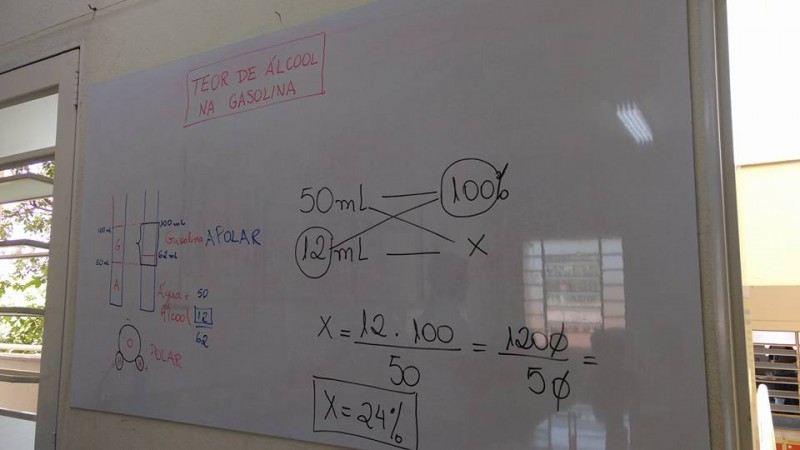 TEOR DE ÁLCOOL
NA GASOLINA
100 mL
G
Gasolina APOLAR
62 mL
A
Água + 50
Álcool 12
62
POLAR
50 mL — 100%
12 mL — X
X = 12 . 100 / 50 = 1200 / 50 =
X = 24%